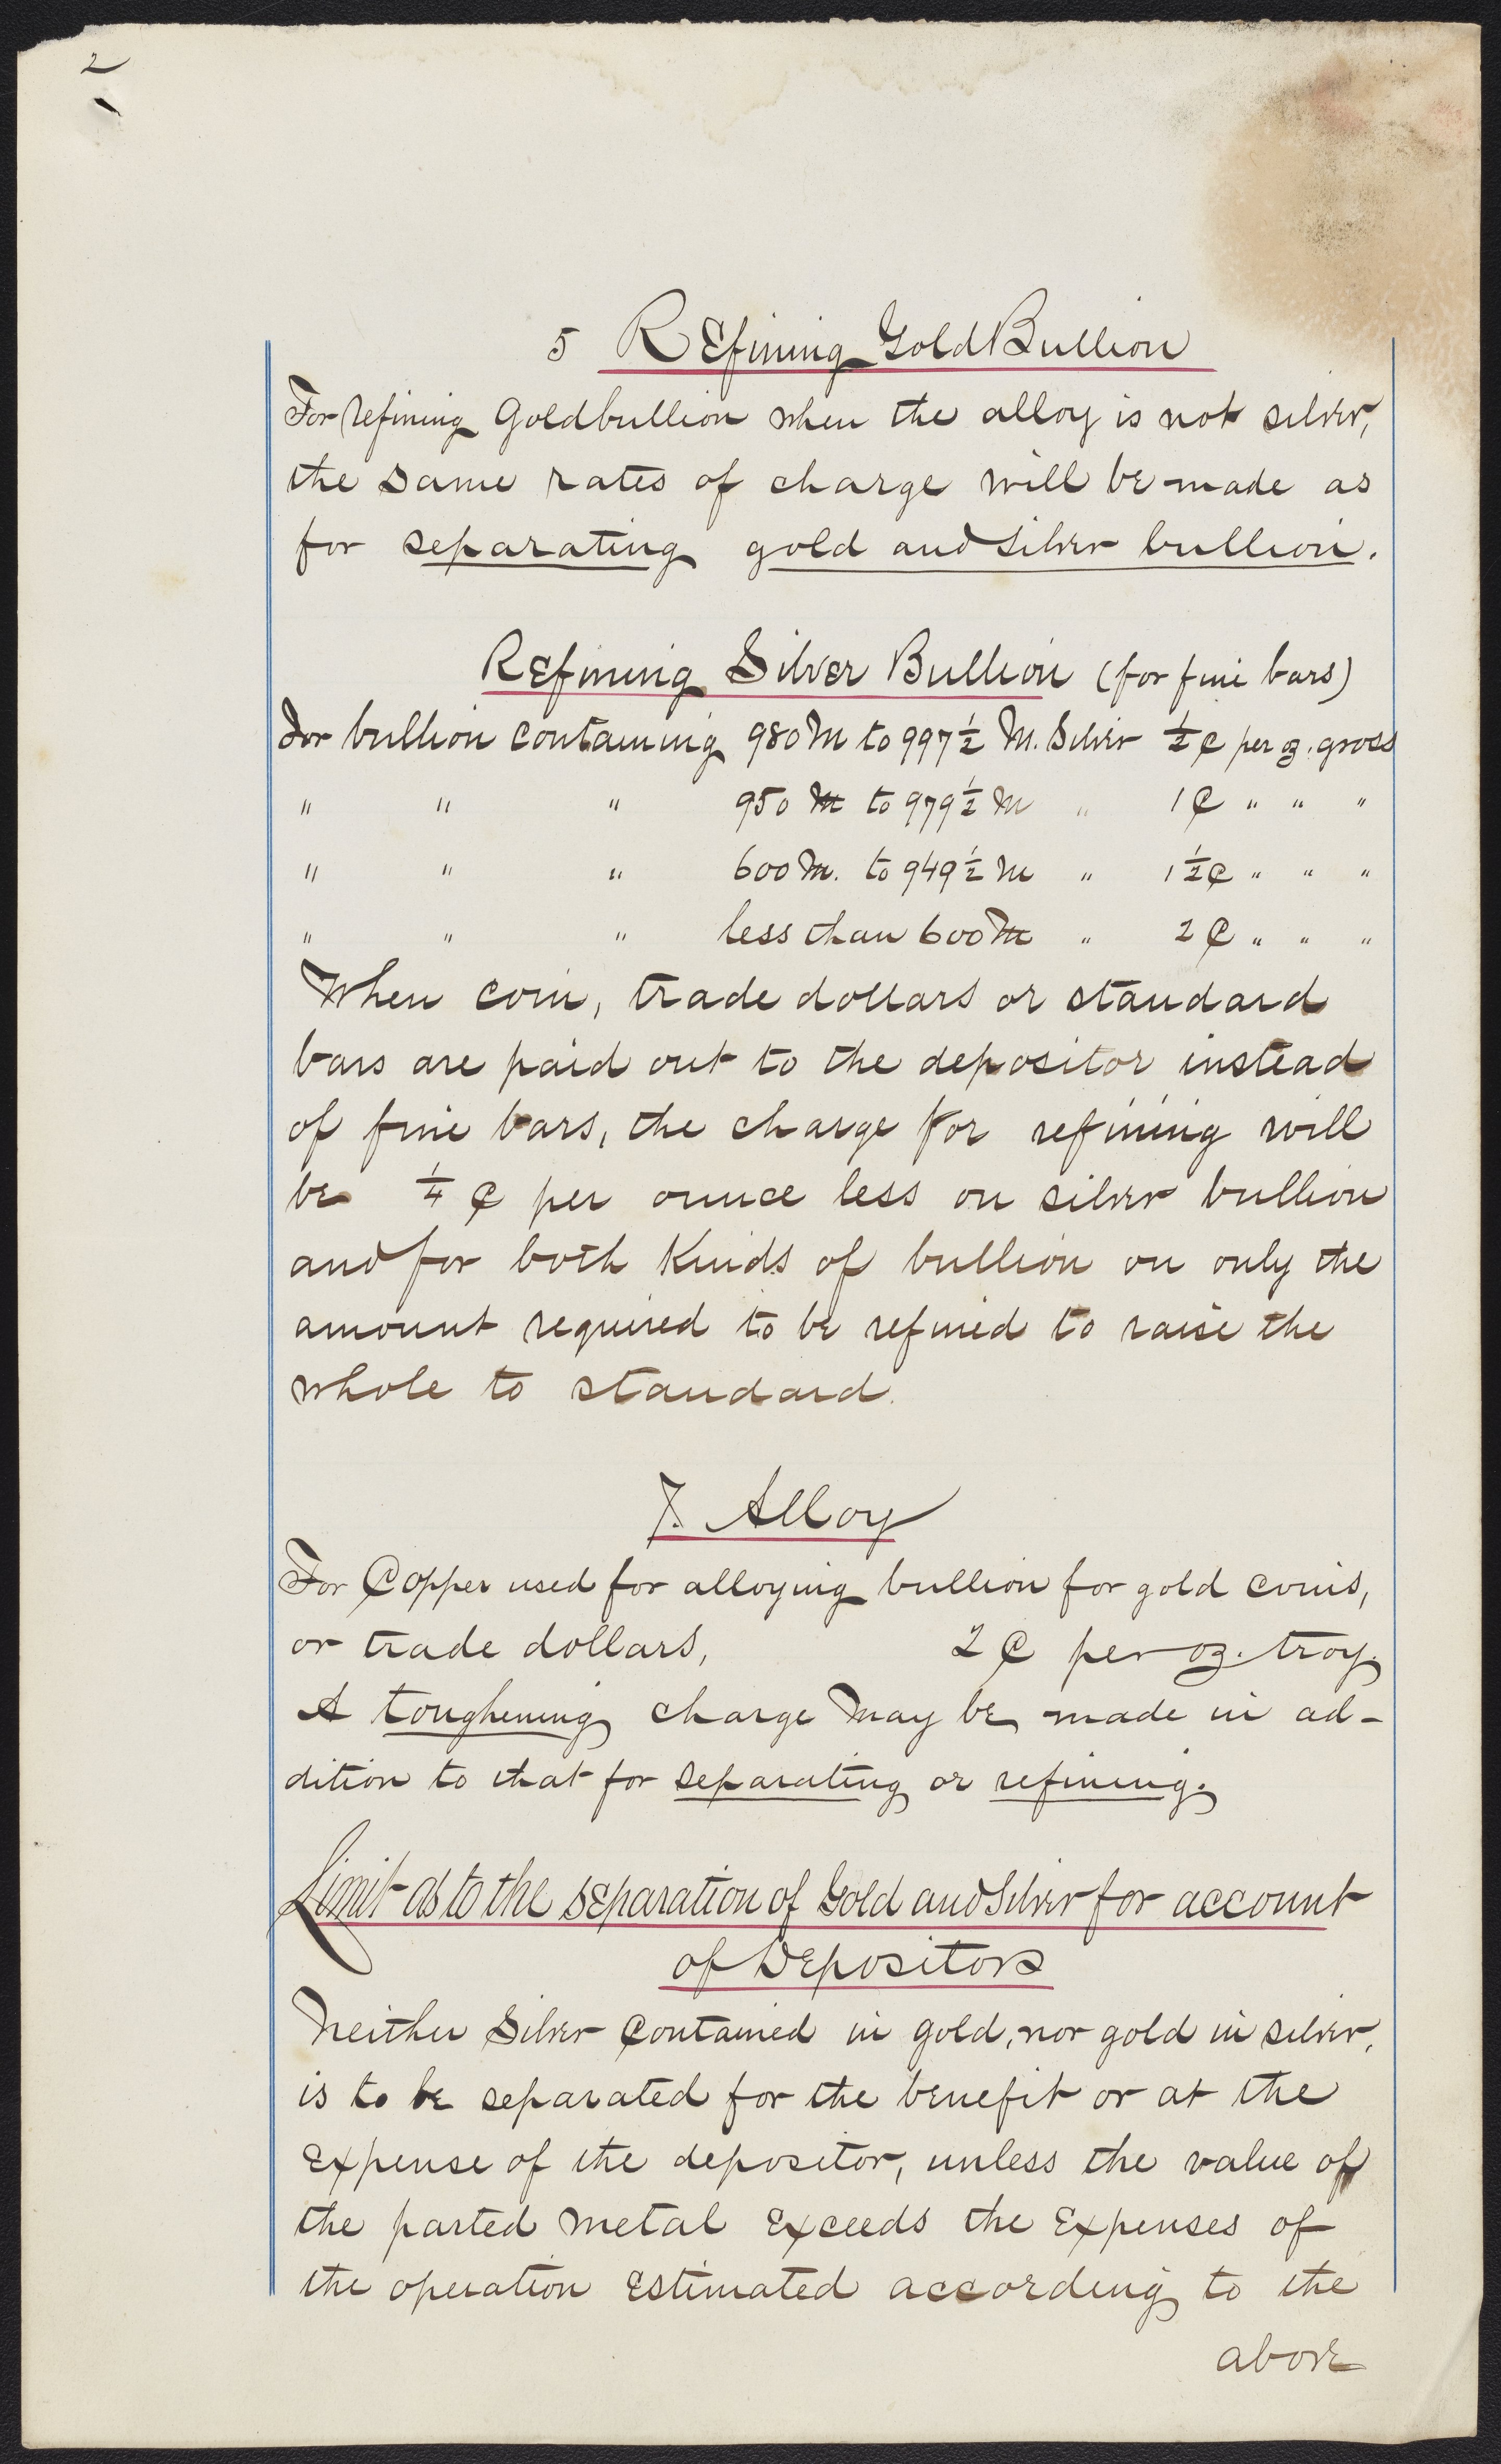 2
5 Refining Gold Bullion
For refining Gold bullion when the alloy is not silver,
the same rates of charge will be made as
for separating gold and silver bullion.
Refining Silver Bullion (for fine bars)
For bullion containing 980 M to 997½ M. Silver ½ ¢ per oz. gross
" " " 950 M to 979½ M " 1 ¢ " " "
" " " 600 M. to 949½ M " 1½ ¢ " " "
" " " less than 600 M " 2 ¢ " " "
When coin, trade dollars or standard
bars are paid out to the depositor instead
of fine bars, the charge for refining will
be ¼ ¢ per ounce less on silver bullion
and for both kinds of bullion on only the
amount required to be refined to raise the
whole to standard.
7. Alloy
For Copper used for alloying bullion for gold coins,
or trade dollars, 2 ¢ per oz. troy.
A toughening charge may be made in ad-
dition to that for separating or refining.
Limit as to the separation of Gold and Silver for account
of Depositors
Neither Silver Contained in gold, nor gold in silver,
is to be separated for the benefit or at the
Expense of the depositor, unless the value of
the parted metal Exceeds the Expenses of
the operation Estimated according to the
above